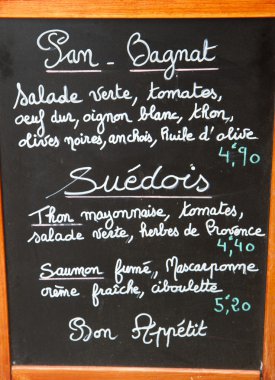 Pan - Bagnat
Salade verte, tomates,
oeuf dur, oignon blanc, thon,
olives noires, anchois, huile d'olive
4,€90
Suédois
Thon mayonnaise, tomates,
salade verte, herbes de Provence
4,€40
Saumon fumé, Mascarponne
crème fraîche, ciboulette
5,€20
Bon Appétit